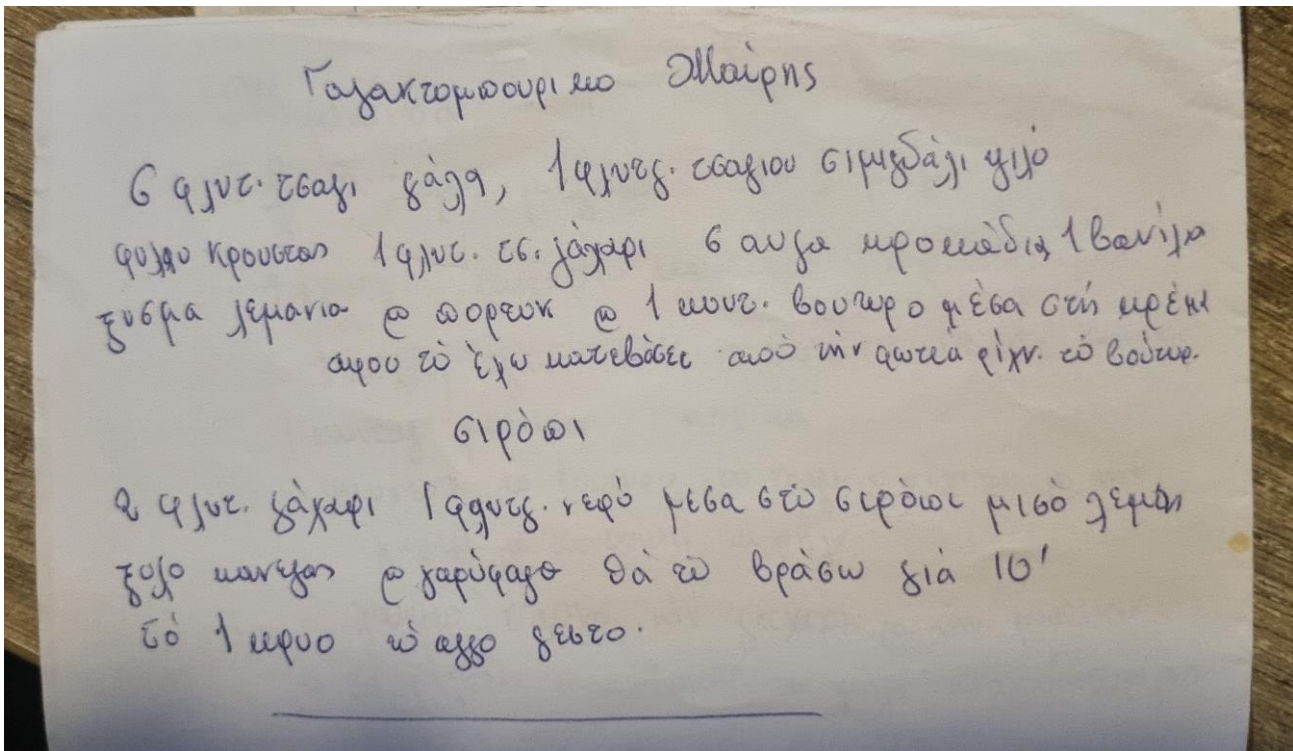 Γαλακτομπουρικο Μαίρης
6 φλυτ. τσαγι γάλα, 1 φλυτζ. τσαγιου σιμιγδάλι ψιλό
φυλλο κρουστας 1 φλυτ. τσ. ζάχαρι 6 αυγα κροκάδια 1 βανίλα
ξυσμα λεμονια @ πορτοκ @ 1 κουτ. βουτυρο μέσα στή κρέμ
αφου τό έχω κατεβάσει από τήν φωτιά ρίχν. τό βούτυρ.
σιρόπι
2 φλυτ. ζάχαρι 1 φλυτζ. νερό μεσα στό σιρόπι μισό λεμον
ξυλο κανελας @ γαρύφαλο θά τό βράσω γιά 10'
τό 1 κρυο τό αλλο ζεστο.